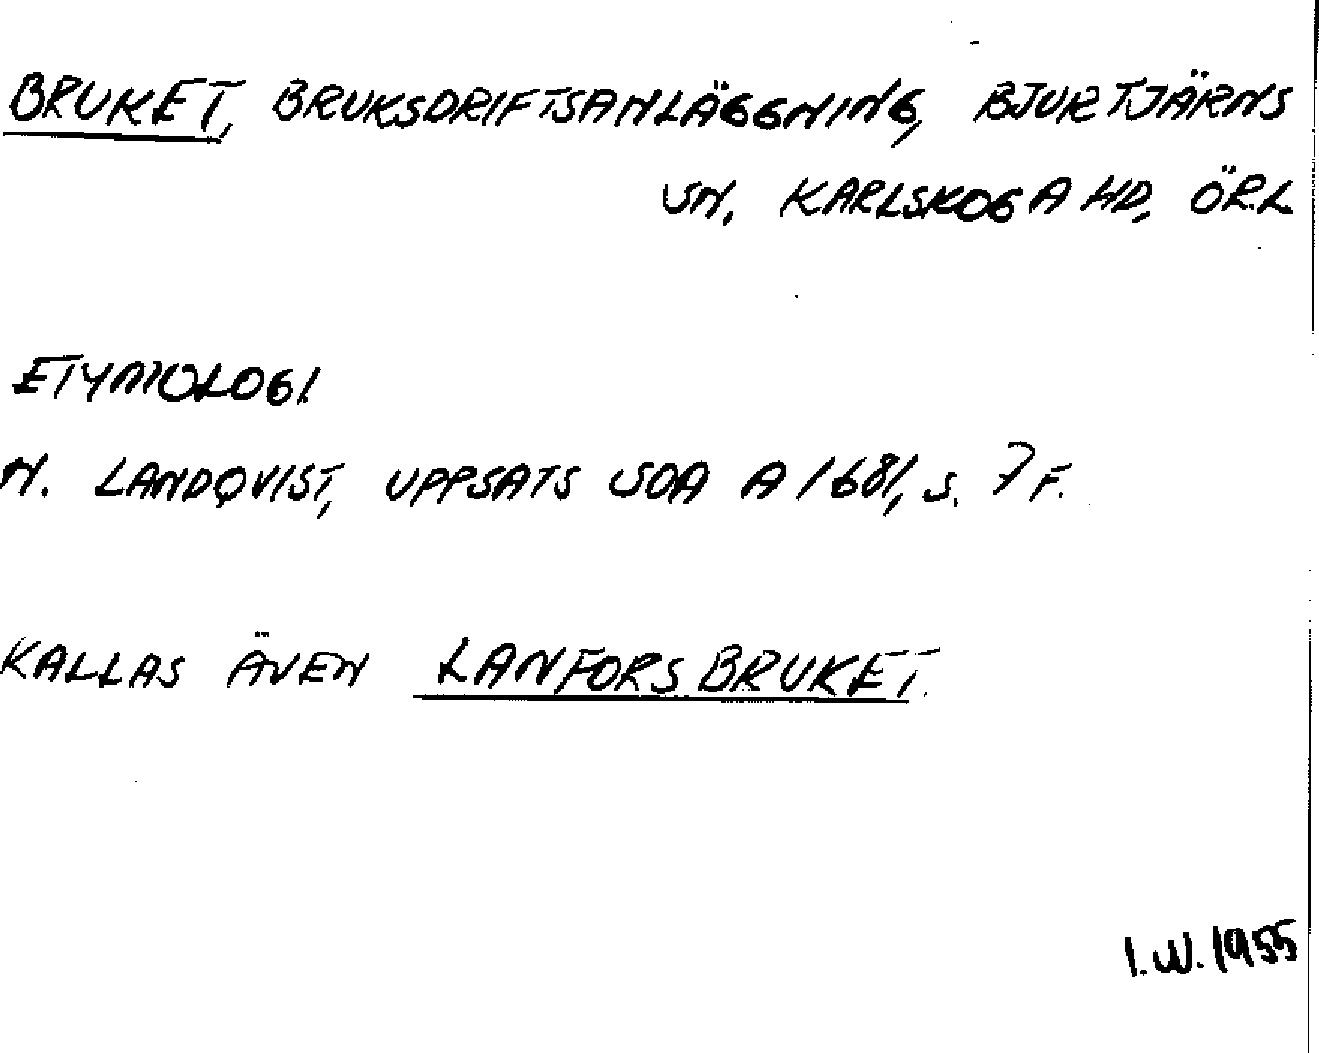 BRUKET, BRUKSDRIFTSANLÄGGNING, BJURTJÄRNS
SN, KARLSKOGA HD, ÖRL
ETYMOLOGI.
N. LANDQVIST, UPPSATS SOA A 1681, S. 7 F.
KALLAS ÄVEN LANFORSBRUKET.
I.W. 1955